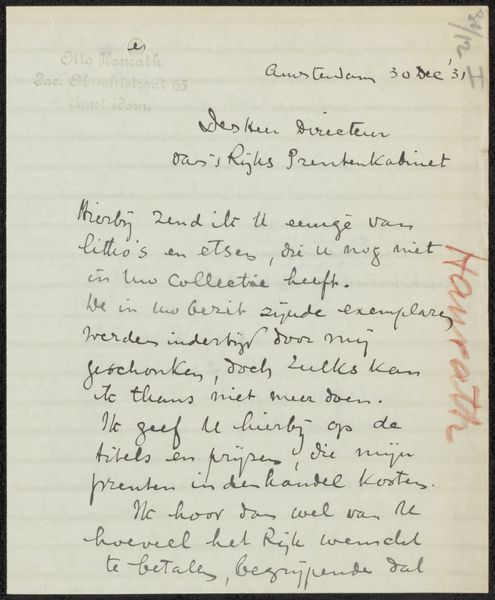 Otto Hanrath
Jac. Obrechtstraat 65
Amsterdam.
Amsterdam 30 Dec '31
Den Heer Directeur
van 's Rijks Prentenkabinet
Hierbij zend ik U eenige van
litho's en etsen, die u nog niet
in Uw Collectie heeft.
De in Uw bezit zijnde exemplaren
werden indertijd door mij
geschonken, doch zulks kan
ik thans niet meer doen.
Ik geef U hierbij op de
titels en prijzen, die mijn
prenten in den handel kosten.
Ik hoor dan wel van U
hoeveel het Rijk wenscht
te betalen, begrijpende dat
Hanrath